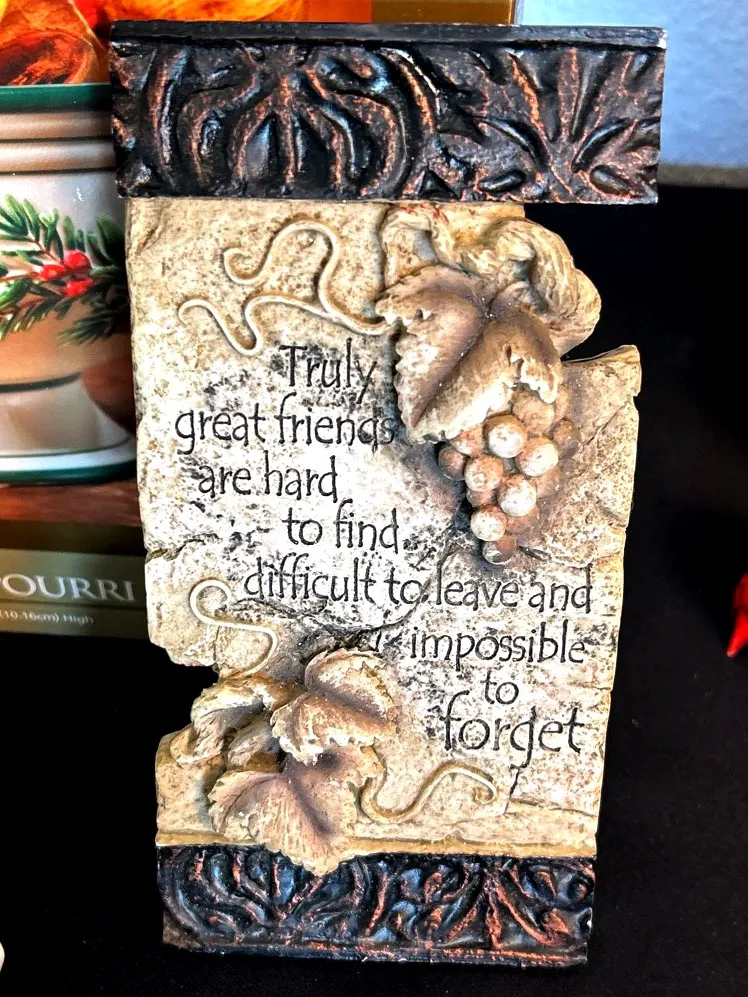 Truly
great friends
are hard
to find
difficult to leave and
impossible
to
forget
POURRI
(10.16cm) High